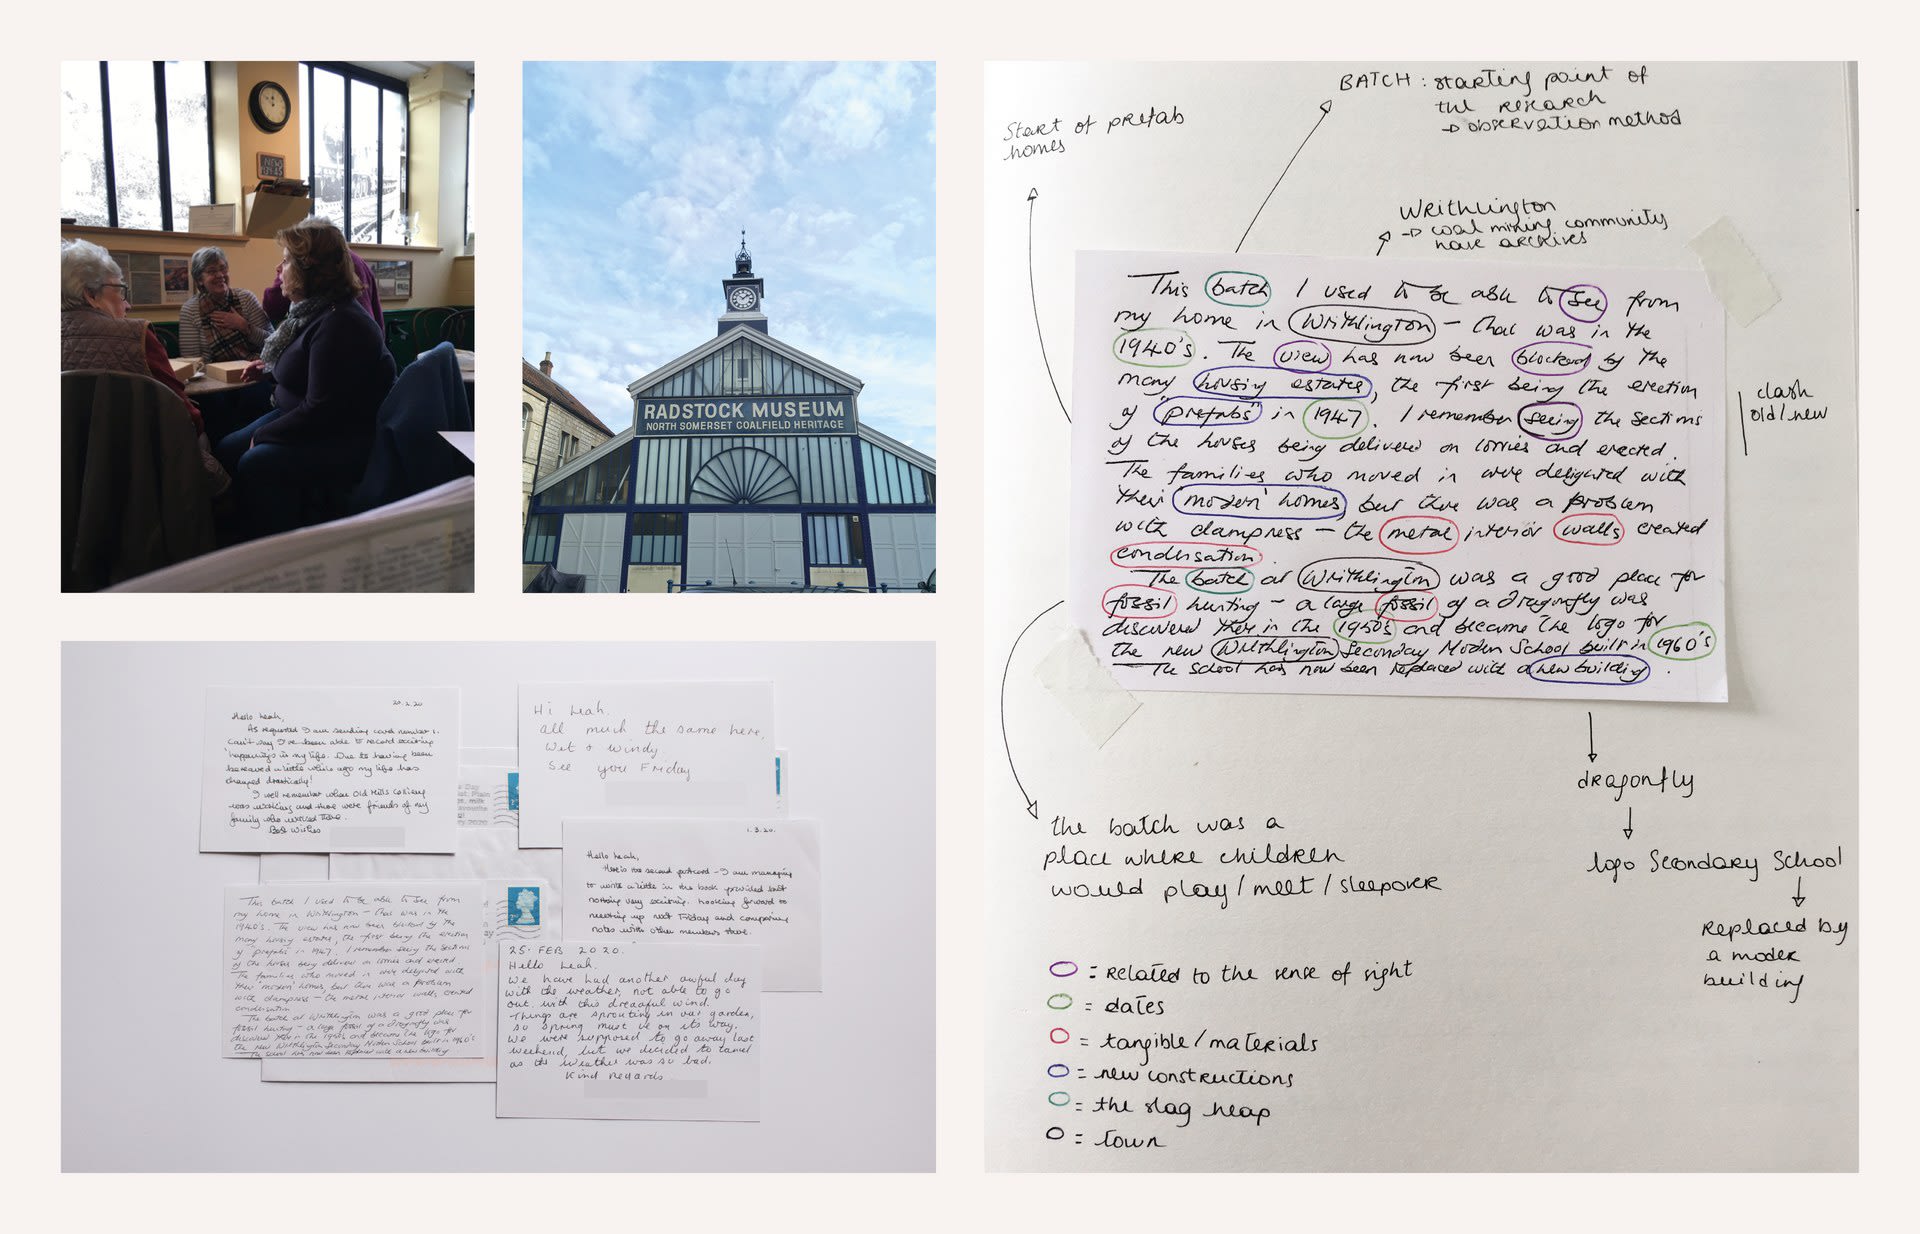 NEW
IDEAS
RADSTOCK MUSEUM
NORTH SOMERSET COALFIELD HERITAGE
20.2.20
Hello Leah,
As requested I am sending card number 1.
Can't say I've been able to record exciting
happenings in my life. Due to having been
bereaved a little while ago my life has
changed drastically!
I well remember when Old Mills Colliery
was working and there were friends of my
family who worked there.
Best Wishes
Hi Leah.
all much the same here,
Wet & windy
See you Friday
1.3.20.
Hello Leah,
Here is the second postcard - I am managing
to write a little in the book provided but
nothing very exciting. Looking forward to
meeting up next Friday and comparing
notes with other members there.
This batch I used to be able to see from
my home in Writhlington – that was in the
1940's. The view has now been blocked by the
many housing estates, the first being the erection
of prefabs in 1947. I remember seeing the sections
of the houses being delivered on lorries and erected.
The families who moved in were delighted with
their 'modern' homes, but there was a problem
with dampness – the metal interior walls created
condensation.
The batch at Writhlington was a good place for
fossil hunting – a large fossil of a dragonfly was
discovered there in the 1950's and became the logo for
the new Writhlington Secondary Modern School built in 1960's
The school has now been replaced with a new building
25. FEB 2020.
Hello Leah.
We have had another awful day
with the weather, not able to go
out, with this dreadful wind.
Things are sprouting in our garden,
so spring must be on its way.
We were supposed to go away last
weekend, but we decided to cancel
as the weather was so bad.
Kind Regards
BATCH : starting point of
the research
→ observation method
Start of prefab
homes
Writhlington
→ coal mining community
have archives
This batch I used to be able to see from
my home in Writhlington – that was in the
1940's. The view has now been blocked by the
many housing estates, the first being the erection
of "prefabs" in 1947. I remember seeing the sections
of the houses being delivered on lorries and erected.
The families who moved in were delighted with
their 'modern' homes, but there was a problem
with dampness – the metal interior walls created
condensation.
The batch at Writhlington was a good place for
fossil hunting – a large fossil of a dragonfly was
discovered there in the 1950's and became the logo for
the new Writhlington Secondary Modern School built in 1960's
The school has now been replaced with a new building.
clash
old/new
dragonfly
logo Secondary School
Replaced by
a moder
building
the batch was a
place where children
would play/meet/sleepover
= related to the sense of sight
= dates
= tangible/materials
= new constructions
= the slag heap
= town